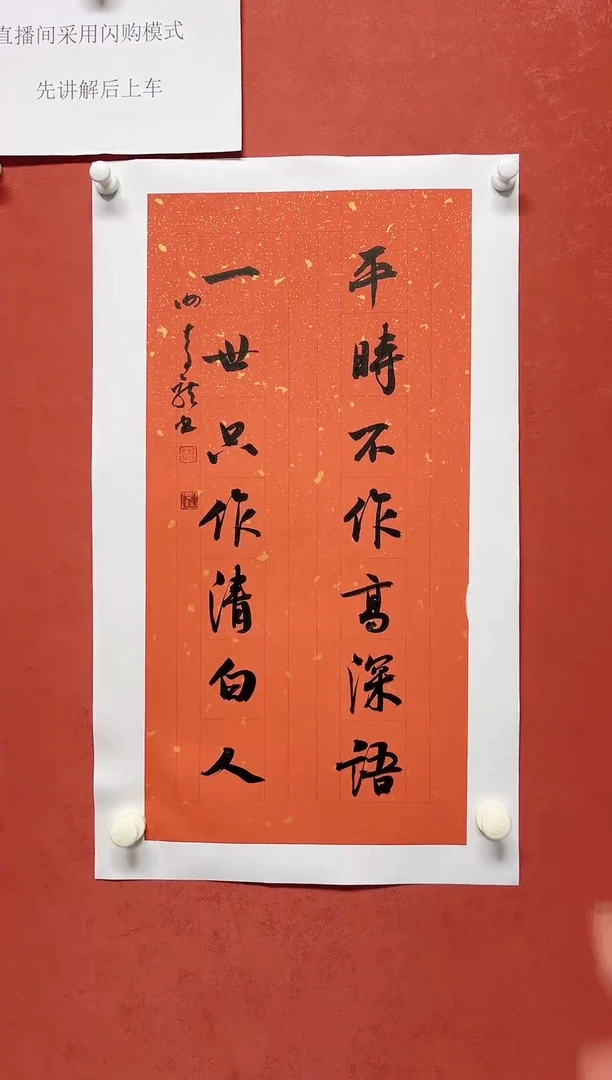 直播间采用闪购模式
先讲解后上车
平時不作高深語
一世只作清白人